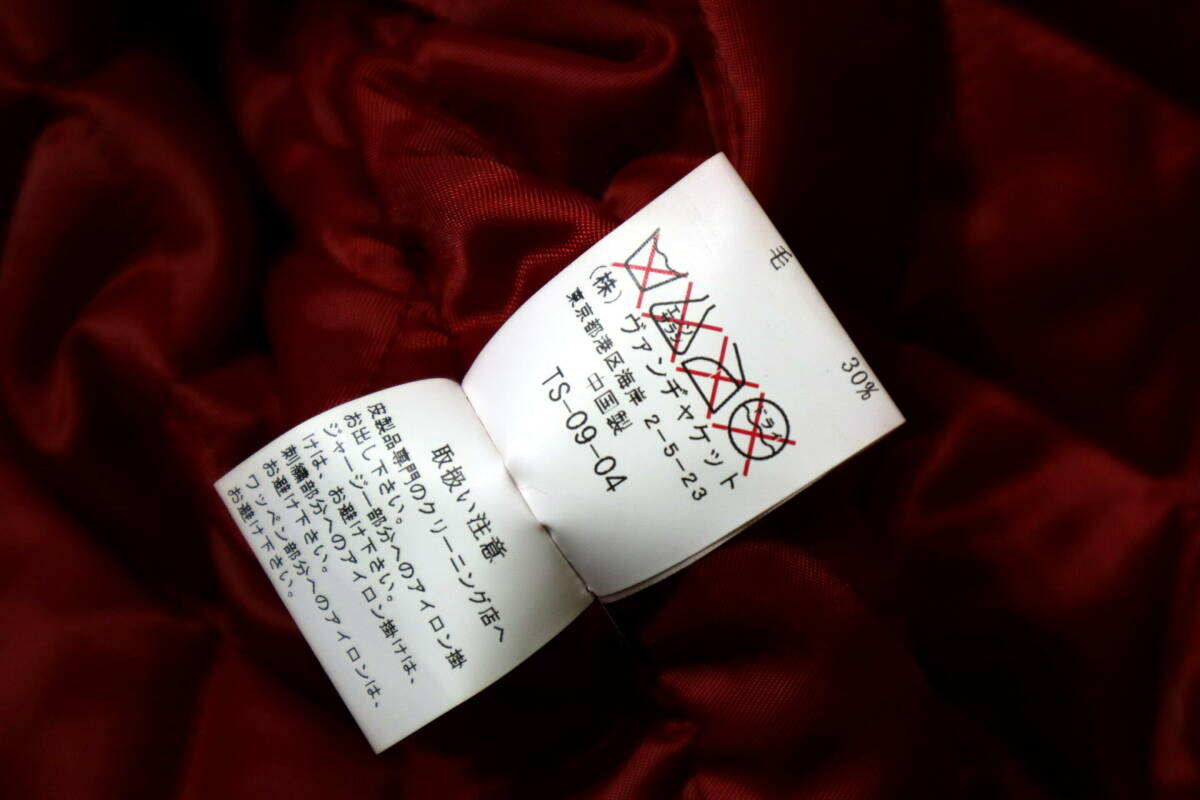 毛 30%
エンソサラシ
ドライ
(株)ヴァンヂャケット
東京都港区海岸 2-5-23
中国製
TS-09-04
取扱い注意
皮製品専門のクリーニング店へ
お出し下さい。
ジャージー部分へのアイロン掛
けは、お避け下さい。
刺繍部分へのアイロン掛けは、
お避け下さい。
ワッペン部分へのアイロンは、
お避け下さい。